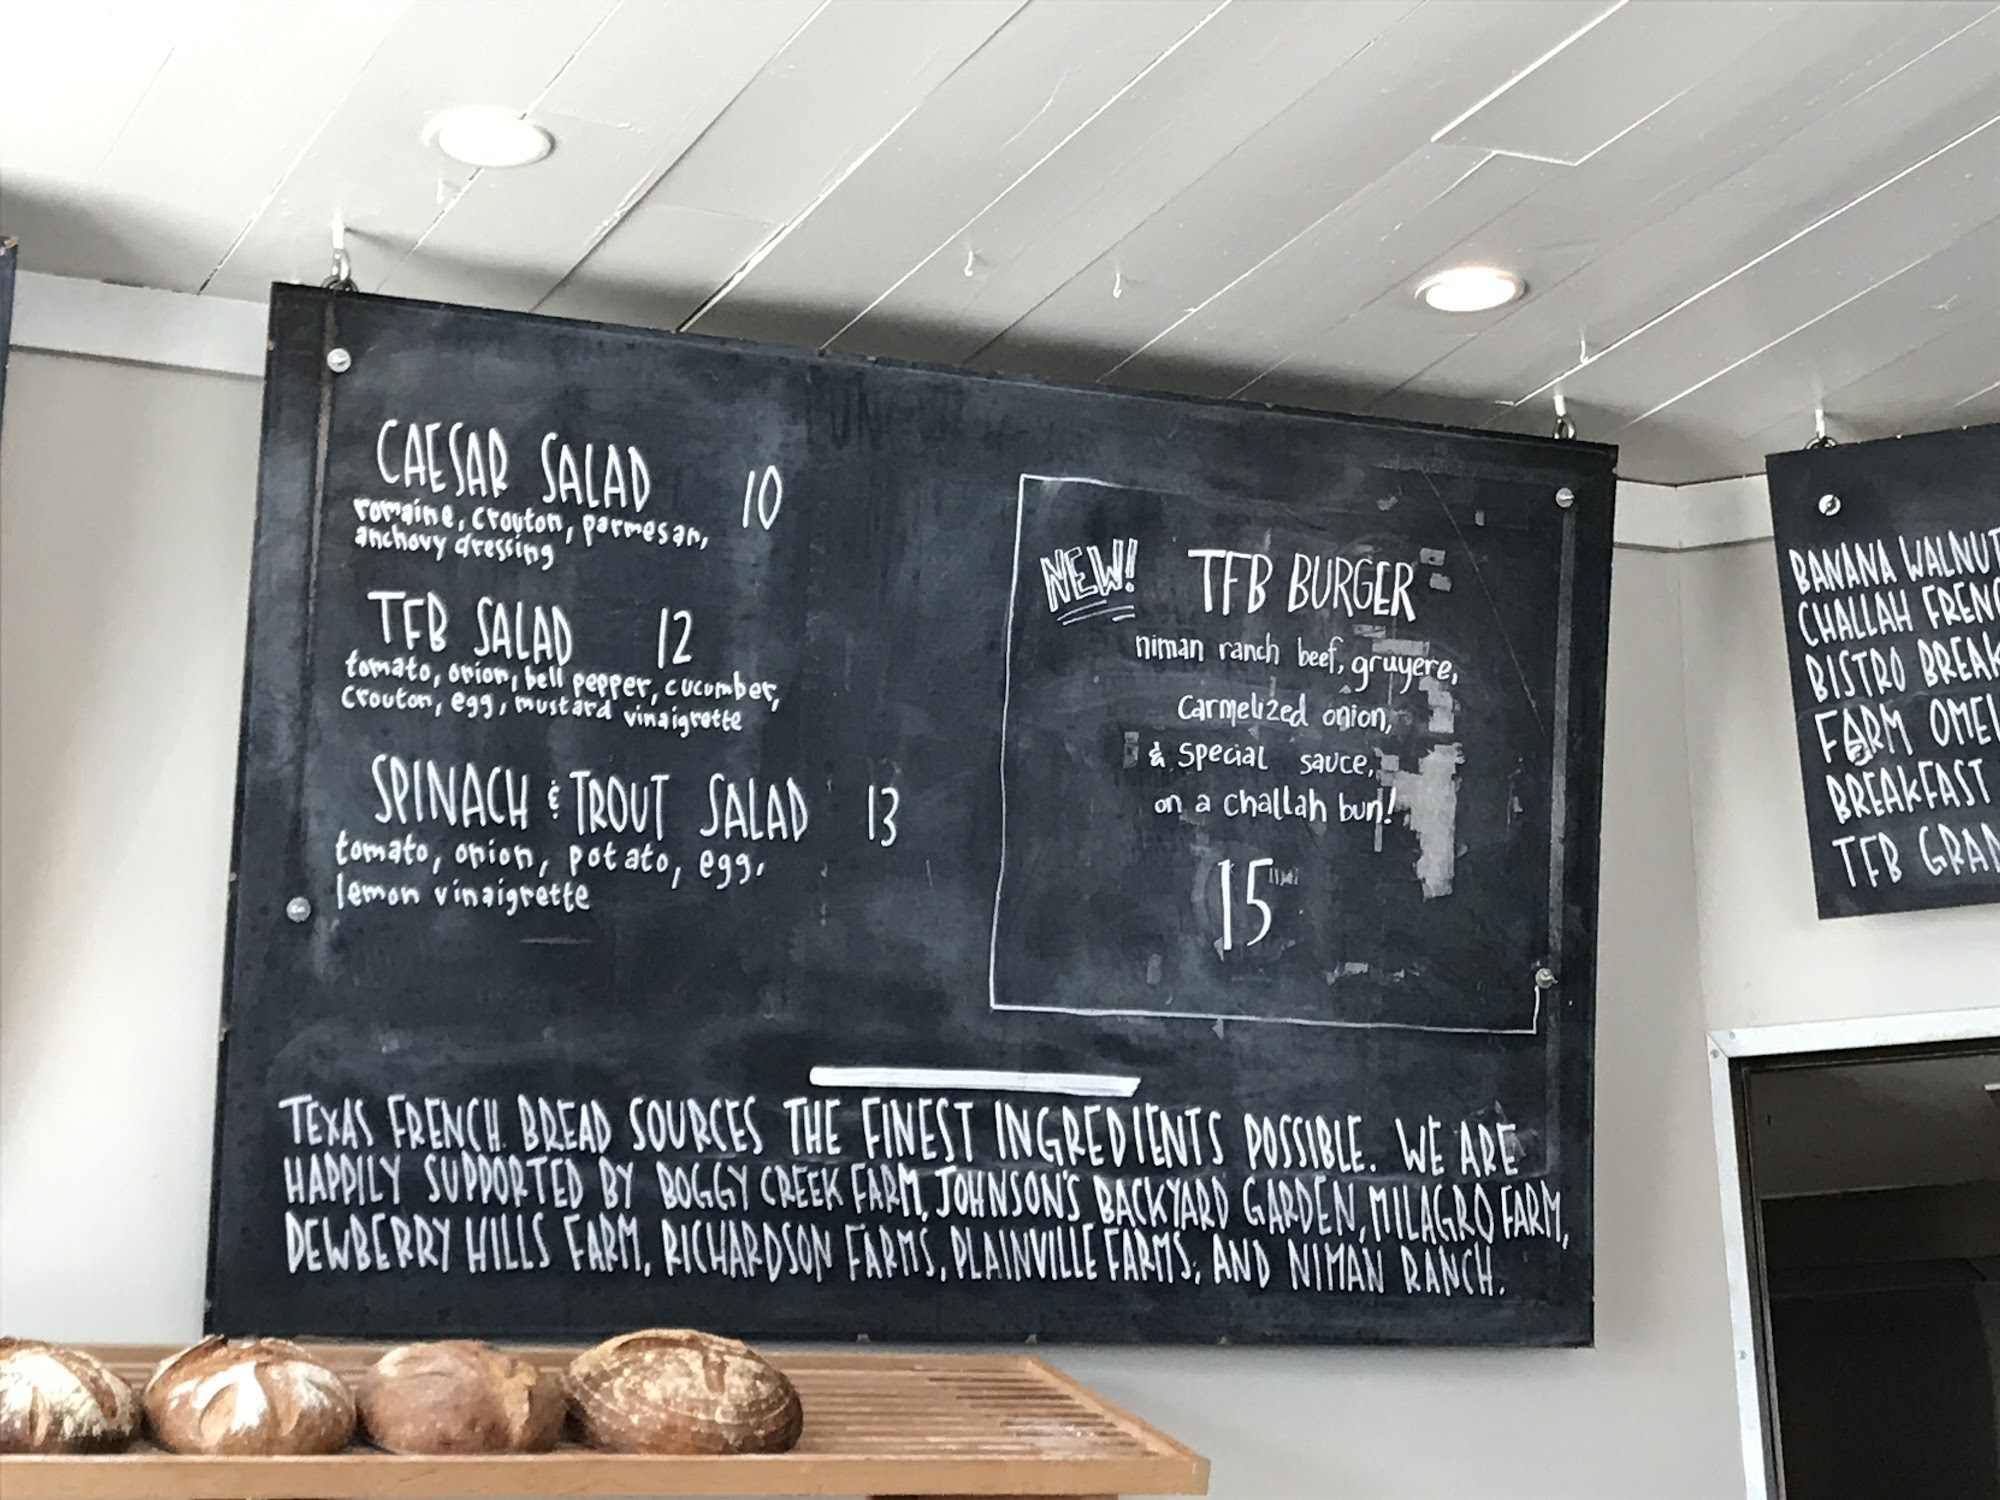 CAESAR SALAD 10
romaine, crouton, parmesan,
anchovy dressing
TFB SALAD 12
tomato, onion, bell pepper, cucumber,
crouton, egg, mustard vinaigrette
SPINACH & TROUT SALAD 13
tomato, onion, potato, egg,
lemon vinaigrette
NEW! TFB BURGER
niman ranch beef, gruyere,
carmelized onion,
& special sauce,
on a challah bun!
15
TEXAS FRENCH BREAD SOURCES THE FINEST INGREDIENTS POSSIBLE. WE ARE
HAPPILY SUPPORTED BY BOGGY CREEK FARM, JOHNSON'S BACKYARD GARDEN, MILAGRO FARM,
DEWBERRY HILLS FARM, RICHARDSON FARMS, PLAINVILLE FARMS, AND NIMAN RANCH.
BANANA WALNUT
CHALLAH FRENC
BISTRO BREAK
FARM OMEL
BREAKFAST
TFB GRAN